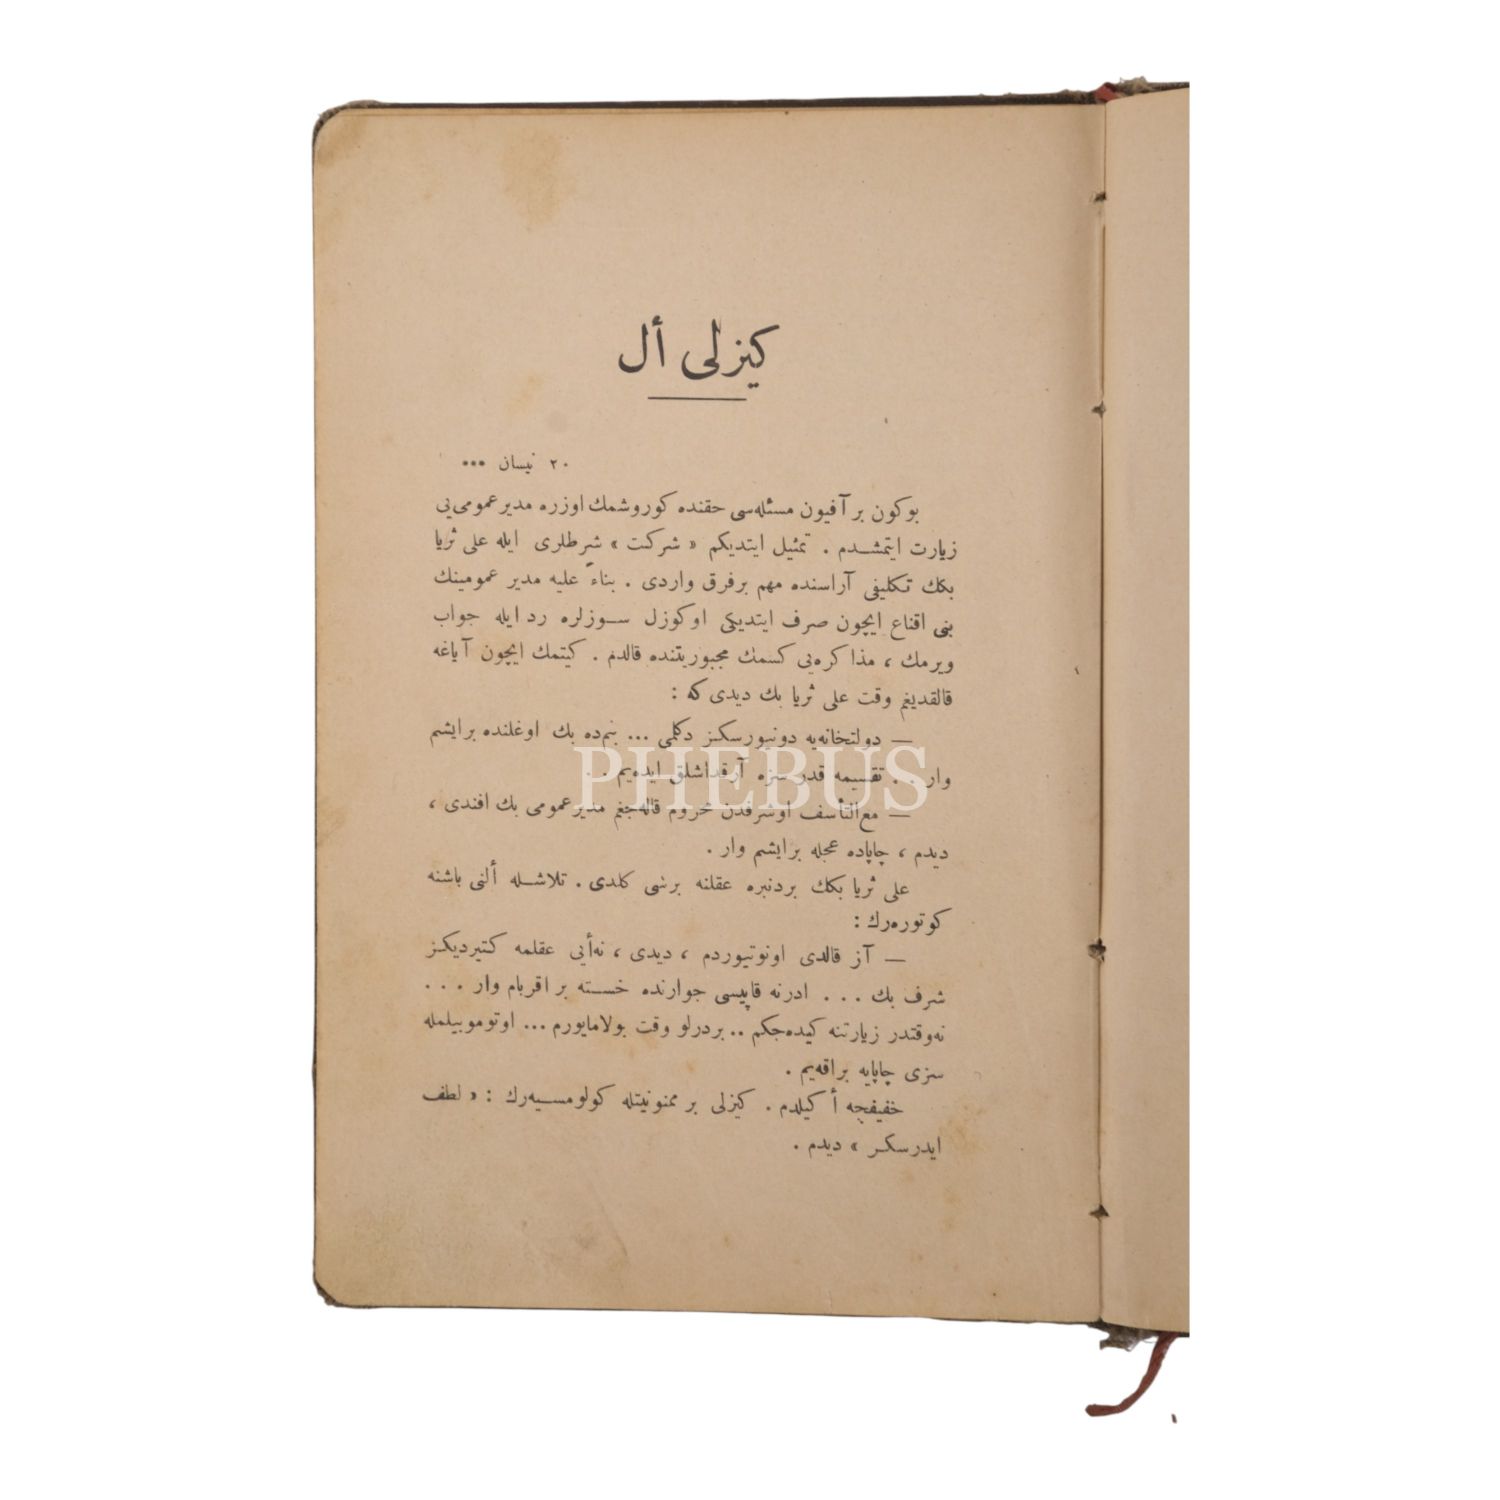 كيزلى أل
٢٠ نيسان ***
بوكون بر آفيون مسئله‌سى حقنده كوروشمك اوزره مدير عمومى‌يى
زيارت ايتمشدم . تمثيل ايتديكم « شركت » شرطلرى ايله على ثريا
بكك تكليفى آراسنده مهم برفرق واردى . بناءً عليه مدير عمومينك
بنى اقناع ايچون صرف ايتديكى او كوزل سوزلره رد ايله جواب
ويرمك ، مذاكره‌يى كسمك مجبوريتنده قالدم . كيتمك ايچون آياغه
قالقديغم وقت على ثريا بك ديدى كه :
— دولتخانه‌يه دونيورسكز دكلمى ... بنم‌ده بك اوغلنده برايشم
وار . . تقسيمه قدر سزه آرقداشلق ايده‌يم . .
— مع‌التأسف اوشرفدن محروم قاله‌جغم مدير عمومى بك افندى ،
ديدم ، چاپاده عجله برايشم وار .
على ثريا بكك بردنبره عقلنه برشى كلدى . تلاشله ألنى باشنه
كوتوره‌رك :
— آز قالدى اونوتيوردم ، ديدى ، نه‌أيى عقلمه كتيرديكز
شرف بك . . . ادرنه قاپيسى جوارنده خسته بر اقربام وار . . .
نه‌وقتدر زيارتنه كيده‌جكم .. بردرلو وقت بولامايورم ... اوتوموبيلمله
سزى چاپايه براقه‌يم .
خفيفجه أكيلدم . كيزلى بر ممنونيتله كولومسيه‌رك : « لطف
ايدرسكز » ديدم .
PHEBUS